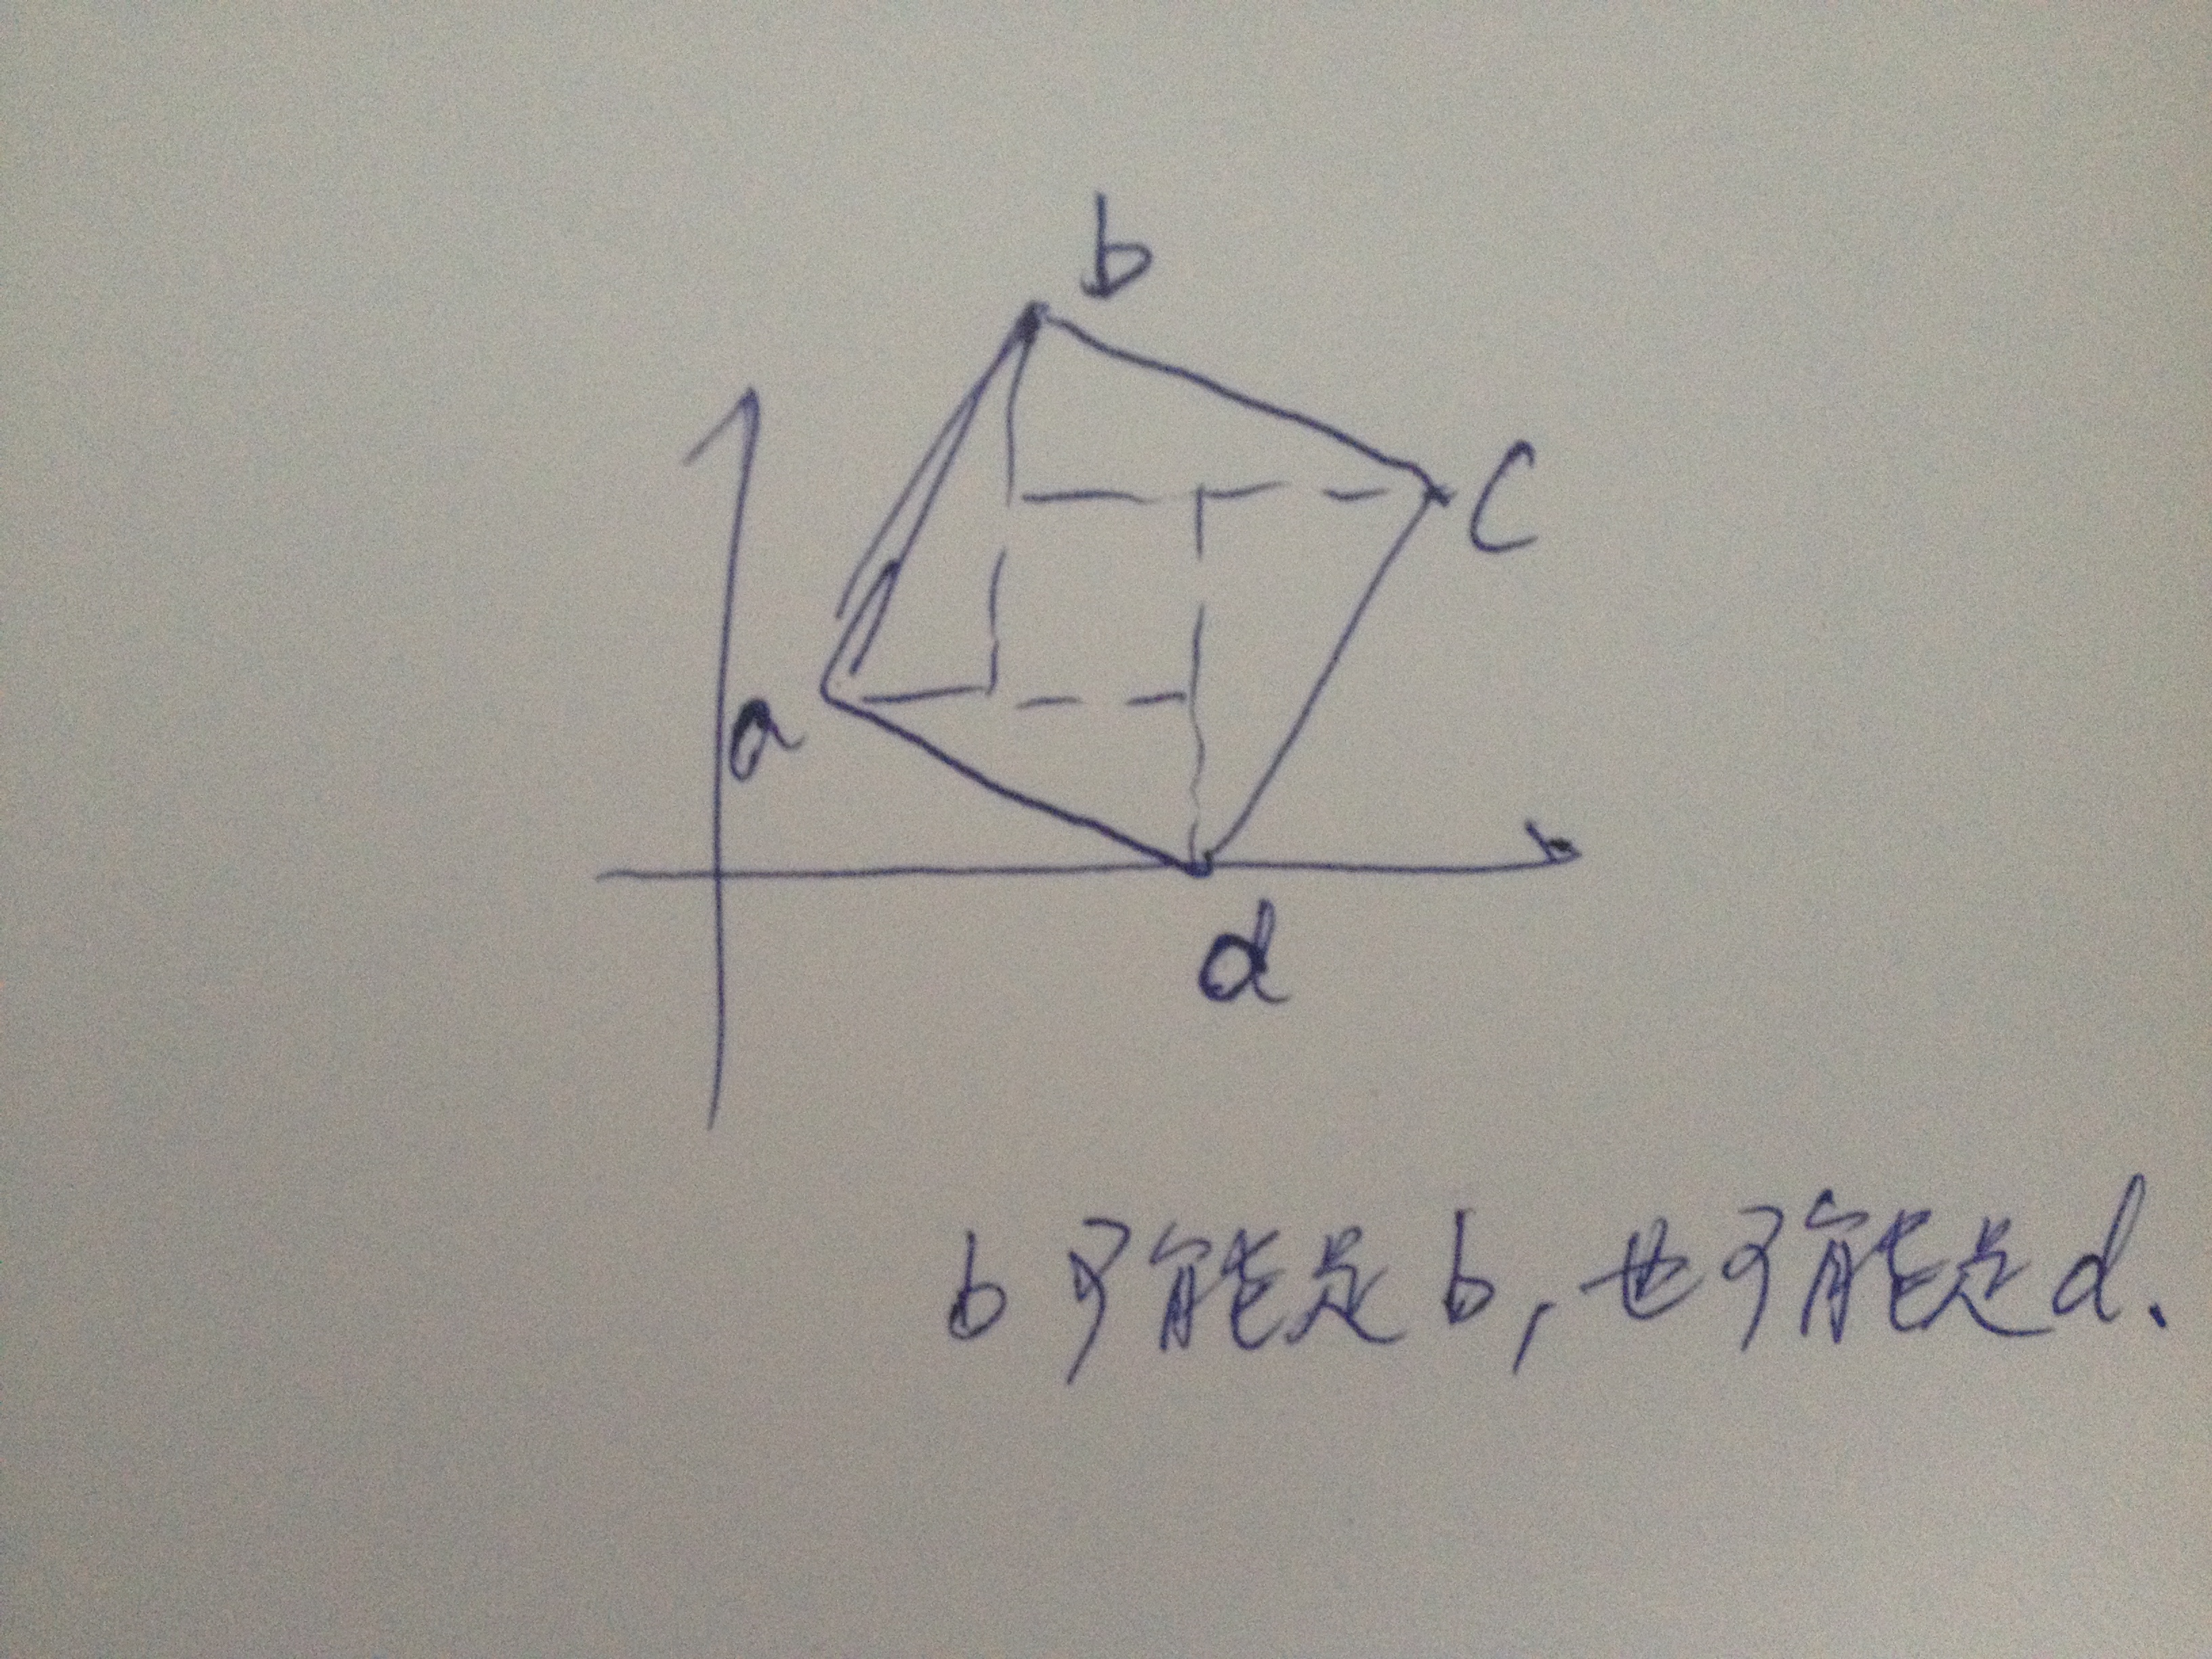 b
C
a
d
b可能是b,也可能是d.